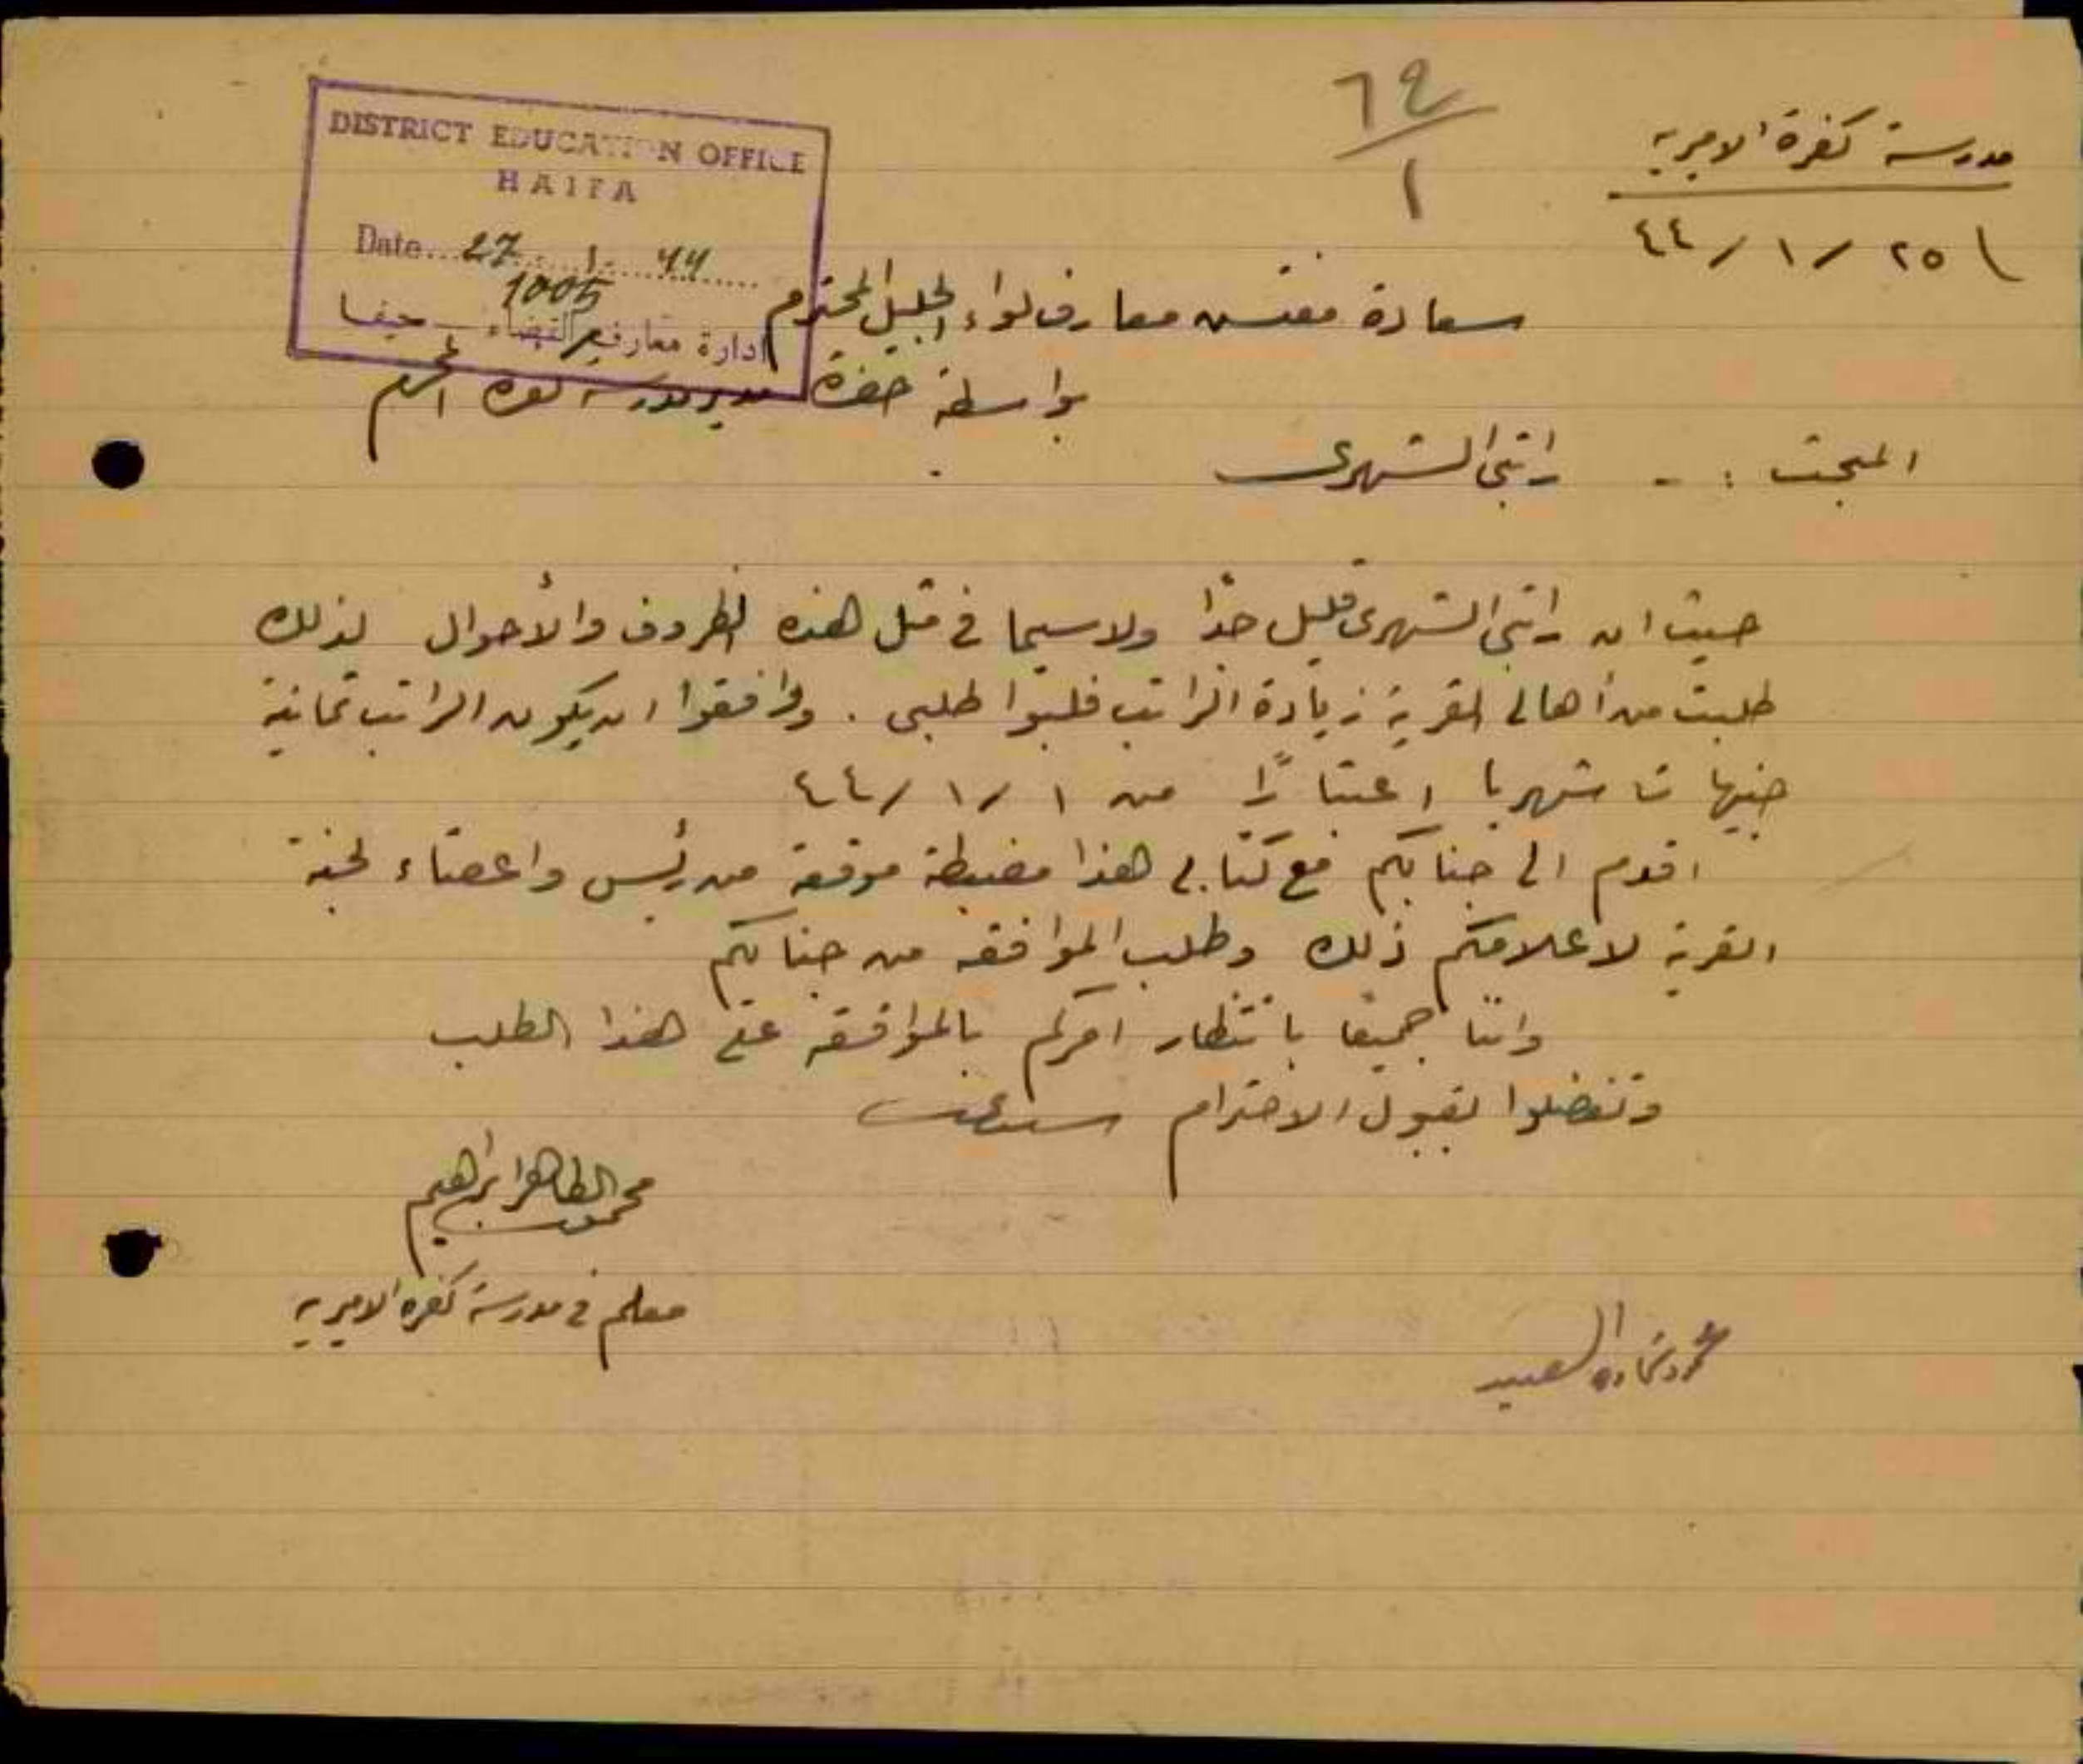 مدرسة كفرة الاميرية
٢٥ / ١ / ٤٤
٦٩
١
DISTRICT EDUCATION OFFICE
HAIFA
Date... 27. 1. 44
1005
ادارة معارف القضاء - حيفا
سعادة مفتش معارف لواء الجليل المحترم
بواسطة حضرة مدير مدرسة كفره المحترم
المبحث : - راتبي الشهري
حيث ان راتبي الشهري قليل جدًا ولاسيما في مثل هذه الظروف والأحوال لذلك
طلبت من أهالي القرية زيادة الراتب فلبوا طلبي . ووافقوا ان يكون الراتب ثمانية
جنيهات شهريا اعتبارًا من ١ / ١ / ٤٤
اقدم الى جنابكم مع كتابي هذا مضبطة موقعة من رئيس واعضاء لجنة
القرية لاعلامكم ذلك وطلب الموافقه من جنابكم
واننا جميعًا بانتظار امركم بالموافقه على هذا الطلب
وتفضلوا بقبول الاحترام سيدي
محمود الطاهر ابراهيم
معلم في مدرسة كفره الاميرية
محمود السعيد